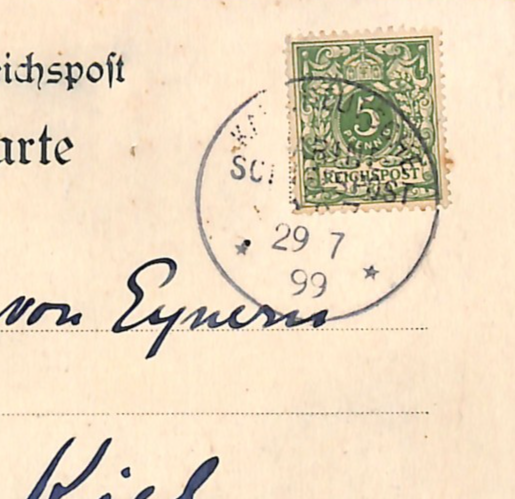 eichspost
arte
5
PFENNIG
REICHSPOST
29 7
99
von Eynern
Kiel